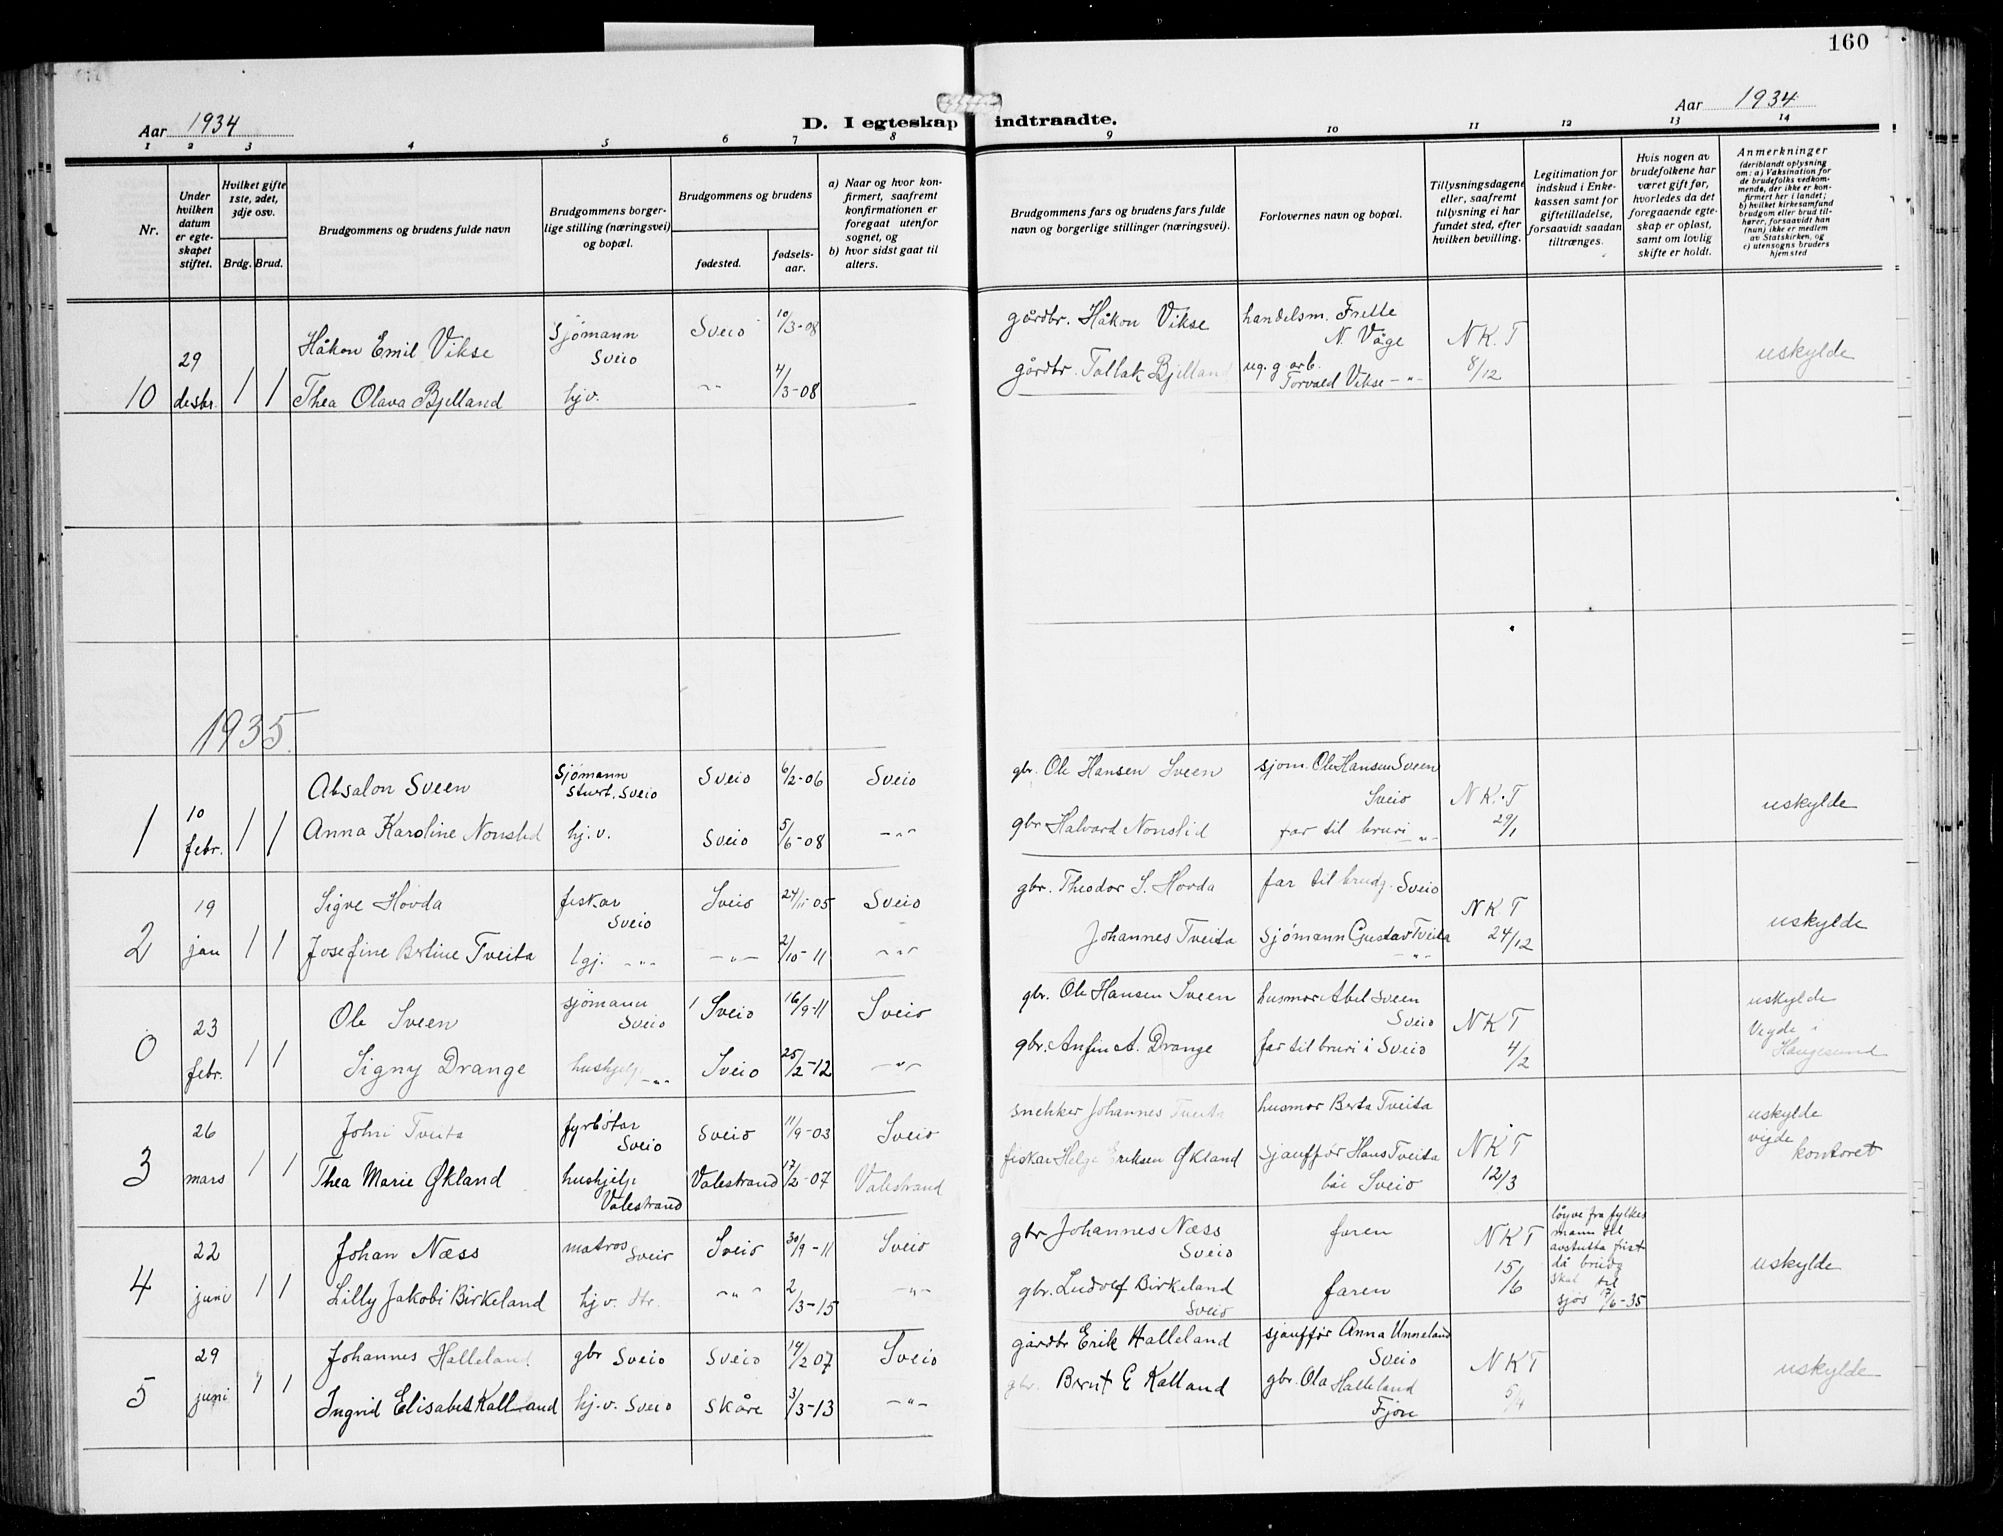 160
Aar 1934
D. I egteskap indtraadte.
Aar 1934
1 2 3 4 5 6 7 8 9 10 11 12 13 14
Nr.
Under hvilken datum er egteskapet stiftet.
Hvilket gifte 1ste, 2det, 3dje osv.
Brdg. Brud.
Brudgommens og brudens fulde navn
Brudgommens borgerlige stilling (næringsvei) og bopæl.
Brudgommens og brudens
fødested.
fødselsaar.
a) Naar og hvor konfirmert, saafremt konfirmationen er foregaat utenfor sognet, og
b) hvor sidst gaat til alters.
Brudgommens fars og brudens fars fulde navn og borgerlige stillinger (næringsvei).
Forlovernes navn og bopæl.
Tillysningsdagene eller, saafremt tillysning ei har fundet sted, efter hvilken bevilling.
Legitimation for indskud i Enkekassen samt for giftetilladelse, forsaavidt saadan tiltrænges.
Hvis nogen av brudefolkene har været gift før, hvorledes da det foregaaende egteskap er opløst, samt om lovlig skifte er holdt.
Anmerkninger
(deriblandt oplysning om: a) Vaksination for de brudefolks vedkommende, der ikke er konfirmert her i landet; b) hvilket kirkesamfund brudgom eller brud tilhører, forsaavidt han (hun) ikke er medlem av Statskirken, og c) utensogns bruders hjemsted
10 29 desbr. 1 1
Håkon Emil Vikse Sjømann Sveio Sveio 10/3-08 gårdbr. Håkon Vikse handelsm. Frette N. Våge N K. T uskylde
Thea Olava Bjelland hj.v. -"- 4/3-08 gårdbr. Tallak Bjelland ug. g arb. Torvald Vikse -"- 8/12
1935.
1 10 febr. 1 1
Absalon Sveen Sjømann Sveio Sveio 6/2-06 Sveio gbr. Ole Hansen Sveen sjom. Ole Hansen Sveen Sveio N K. T uskylde
Anna Karoline Nonslid hj.v. Sveio 5/6-08 -"- gbr Halvard Nonslid far til bruri -"- 29/1
2 19 jan 1 1
Sigve Hovda fiskar Sveio Sveio 24/11-05 Sveio gbr. Theodor S. Hovda far til brudg. Sveio N K. T uskylde
Josefine Bertine Tveita -"- -"- 2/10-11 -"- Johannes Tveita Sjømann Gustav Tveita -"- 24/12
0 23 febr. 1 1
Ole Sveen sjømann Sveio Sveio 16/9-11 Sveio gbr. Ole Hansen Sveen husmor Abel Sveen Sveio N K T uskylde
Signy Drange hushjelp -"- Sveio 25/2-12 -"- gbr. Anfin A. Drange far til bruri i Sveio 4/2 Vegde i Haugesund
3 26 mars 1 1
John Tveita fyrbøtar Sveio Sveio 11/9-03 Sveio snekker Johannes Tveita husmor Berta Tveita N K T uskylde
Thea Marie Økland hushjelp Valestrand Valestrand 17/2-07 Valestrand fiskar Helge Eriksen Økland Sjauffør Hans Tveita båe Sveio 12/3 vigde kontoret
4 22 juni 1 1
Johan Næss matros Sveio Sveio 30/9-11 Sveio gbr Johannes Næss Sveio faren N K T løyve fra fylkesmann til avstutta frist då brudg skal til sjøs 17/6-35 uskylde
Lilly Jakobi Birkeland hj.v. -"- 2/3-15 -"- gbr. Ludolf Birkeland Sveio faren 15/6
5 29 juni 1 1
Johannes Halleland gbr Sveio Sveio 19/2 07 Sveio gårdbr Erik Halleland sjauffør Anna Unneland Sveio N K T uskylde
Ingrid Elisabet Kalland hj.v. Sveio Skåre 3/3-13 -"- gbr. Bernt E Kalland gbr. Ola Halleland Fjon 5/4